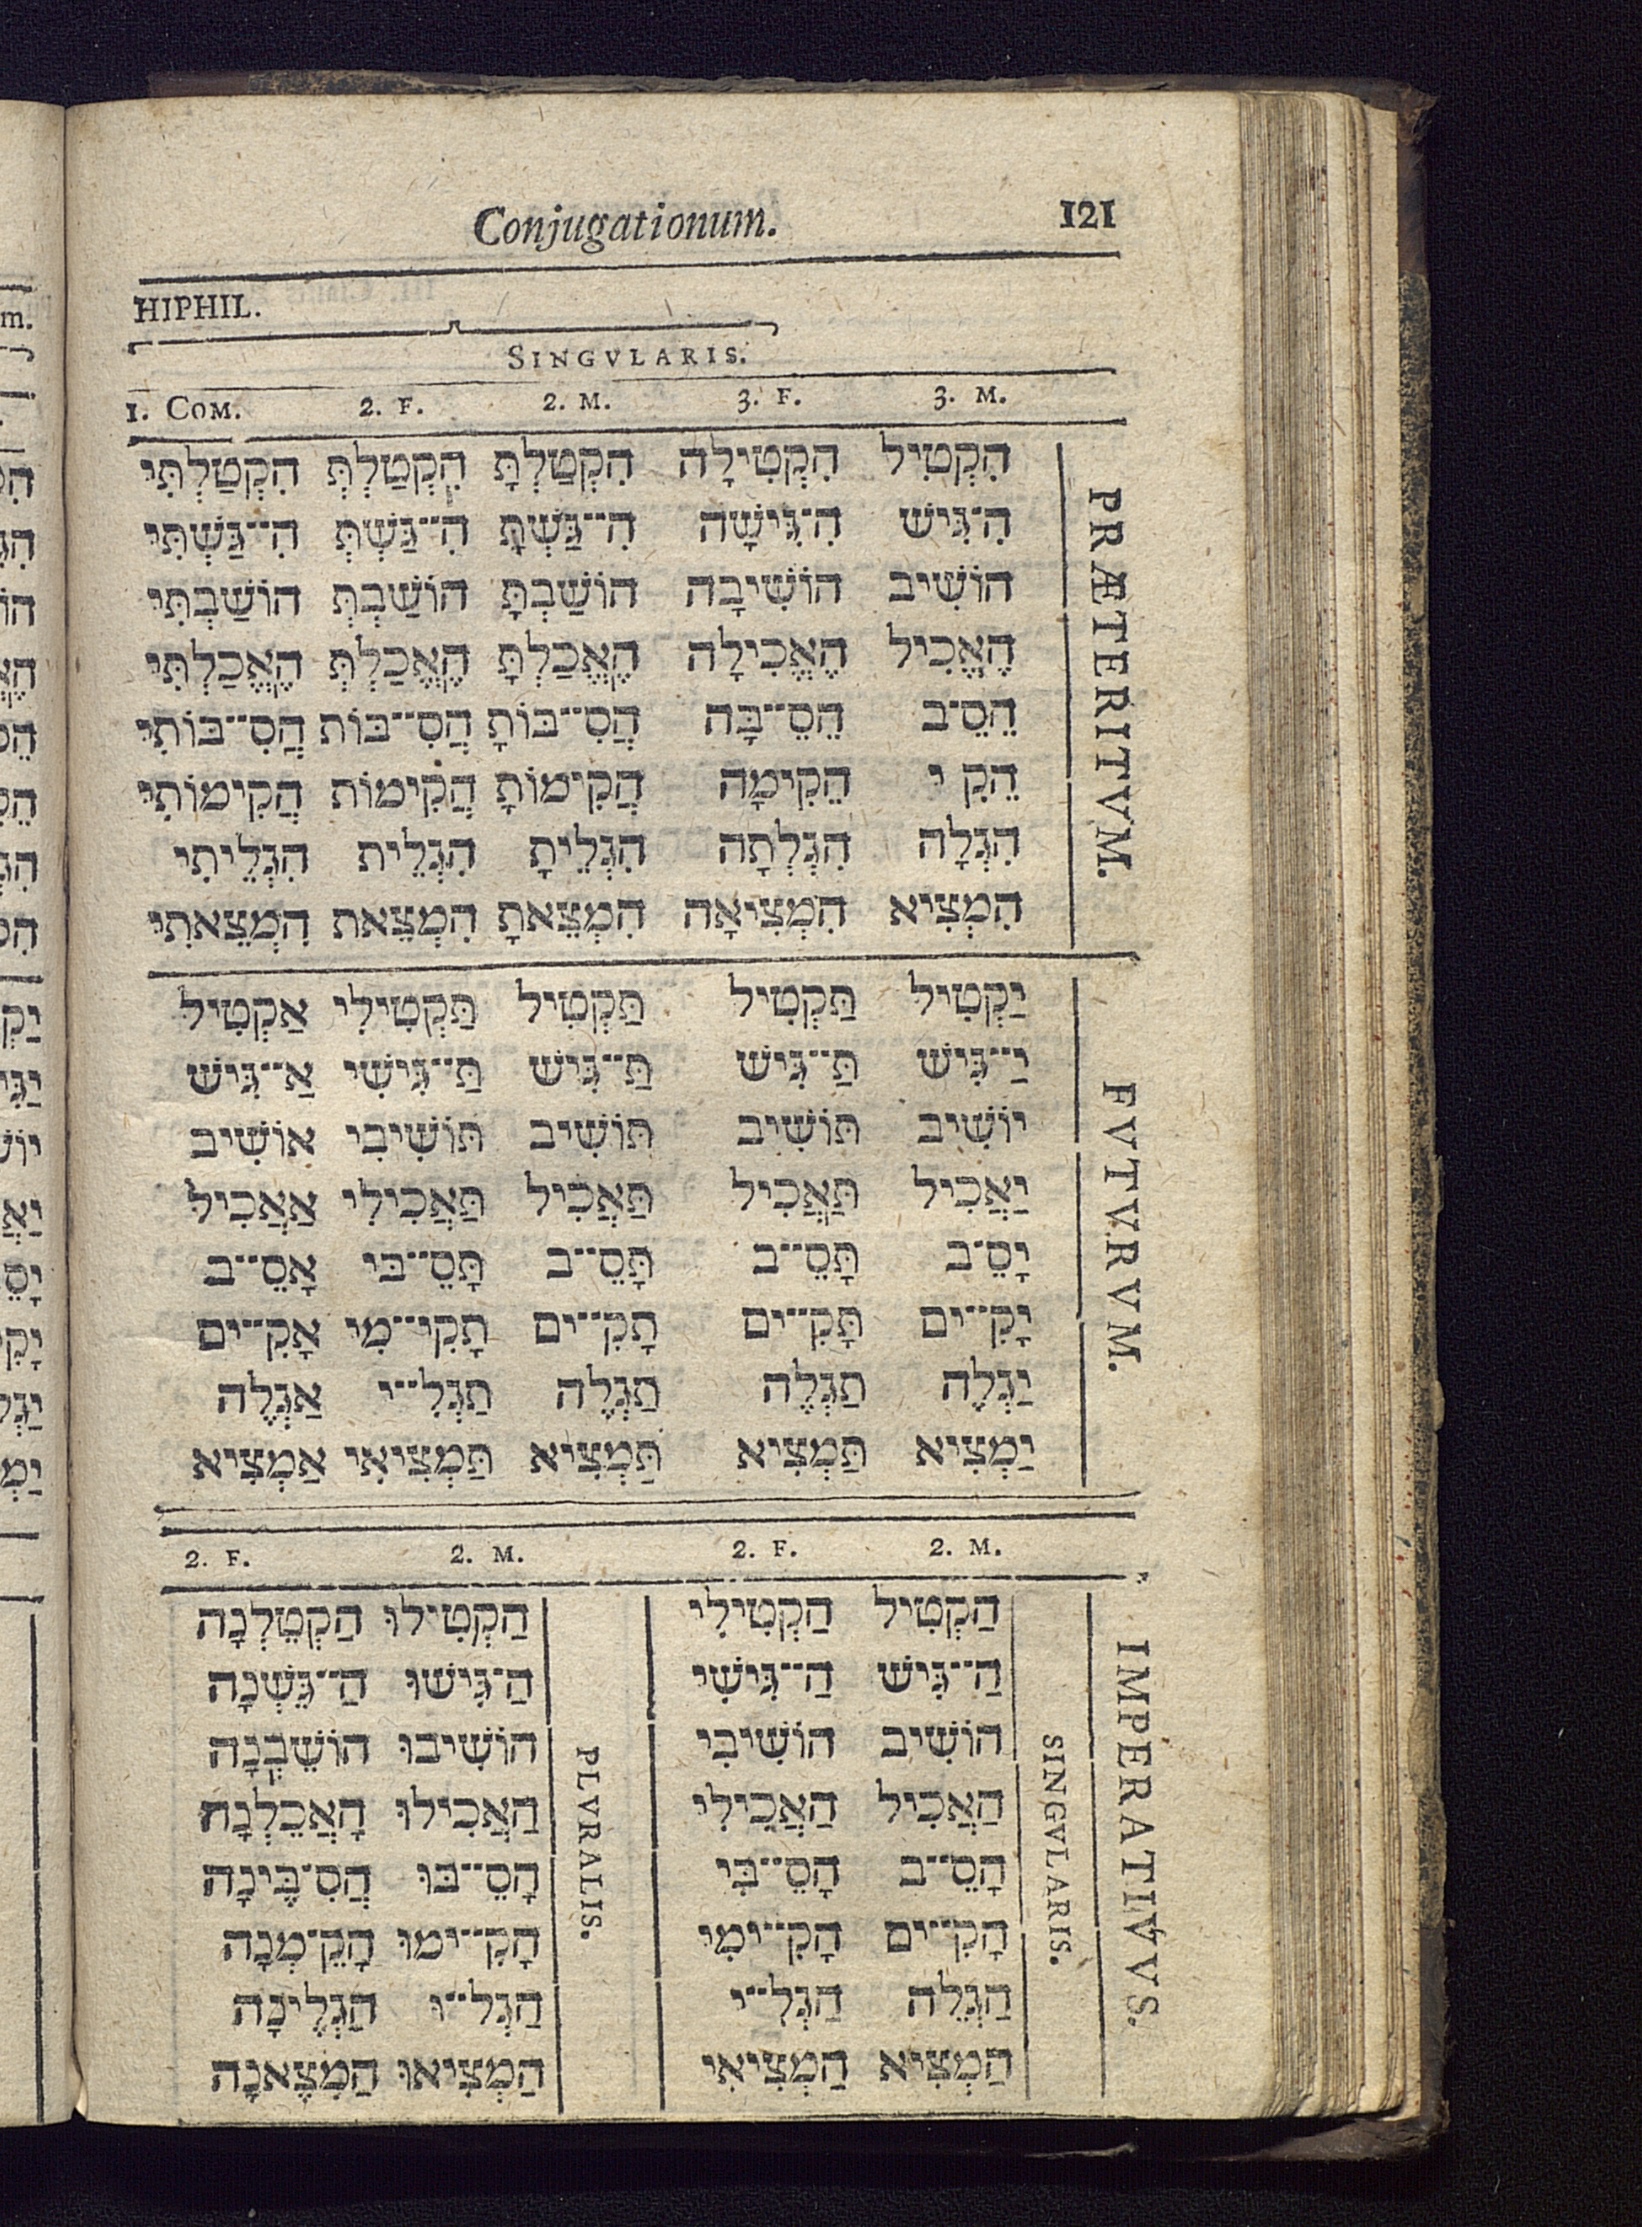 Conjugationum. 121
HIPHIL.
SINGVLARIS.
1. COM. 2. F. 2. M. 3. F. 3. M.
PRÆTERITVM.
הִקְטִיל הִקְטִילָה הִקְטַלְתָּ הִקְטַלְתְּ הִקְטַלְתִּי
הִ־גִּישׁ הִ־גִּישָׁה הִ־־גַּשְׁתָּ הִ־־גַּשְׁתְּ הִ־־גַּשְׁתִּי
הוֹשִׁיב הוֹשִׁיבָה הוֹשַׁבְתָּ הוֹשַׁבְתְּ הוֹשַׁבְתִּי
הֶאֱכִיל הֶאֱכִילָה הֶאֱכַלְתָּ הֶאֱכַלְתְּ הֶאֱכַלְתִּי
הֵסֵ־ב הֵסֵ־־בָּה הֲסִ־־בּוֹתָ הֲסִ־־בּוֹת הֲסִ־־בּוֹתִי
הֵקִ י הֵקִימָה הֲקִימוֹתָ הֲקִימוֹת הֲקִימוֹתִי
הִגְלָה הִגְלְתָה הִגְלֵיתָ הִגְלֵית הִגְלֵיתִי
הִמְצִיא הִמְצִיאָה הִמְצֵאתָ הִמְצֵאת הִמְצֵאתִי
FVTVRVM.
יַקְטִיל תַּקְטִיל תַּקְטִיל תַּקְטִילִי אַקְטִיל
יַ־־גִּישׁ תַּ־־גִּישׁ תַּ־־גִּישׁ תַּ־־גִּישִׁי אַ־־גִּישׁ
יוֹשִׁיב תּוֹשִׁיב תּוֹשִׁיב תּוֹשִׁיבִי אוֹשִׁיב
יַאֲכִיל תַּאֲכִיל תַּאֲכִיל תַּאֲכִילִי אַאֲכִיל
יָסֵ־ב תָּסֵ־־ב תָּסֵ־־ב תָּסֵ־־בִּי אָסֵ־־ב
יָקִ־־ים תָּקִ־־ים תָקִ־־ים תָקִי־־מִי אָקִ־־ים
יַגְלֶה תַגְלֶה תַגְלֶה תַגְלִ־־י אַגְלֶה
יַמְצִיא תַּמְצִיא תַּמְצִיא תַּמְצִיאִי אַמְצִיא
2. F. 2. M. 2. F. 2. M.
IMPERATIVVS.
SINGVLARIS.
PLVRALIS.
הַקְטִיל הַקְטִילִי הַקְטִילוּ הַקְטֵלְנָה
הַ־־גִּישׁ הַ־־גִּישִׁי הַ־גִּישׁוּ הַ־־גֵּשְׁנָה
הוֹשִׁיב הוֹשִׁיבִי הוֹשִׁיבוּ הוֹשֵׁבְנָה
הַאֲכִיל הַאֲכִילִי הַאֲכִילוּ הָאֲכֵלְנָה
הָסֵ־־ב הָסֵ־־בִּי הָסֵ־־בּוּ הֲסִ־בֶּינָה
הָקִ־־ים הָקִ־־ימִי הָקִ־־ימוּ הָקֵ־מְנָה
הַגְלֵה הַגְלִ־־י הַגְל־־וּ הַגְלֶינָה
הַמְצִיא הַמְצִיאִי הַמְצִיאוּ הַמְצֶאנָה